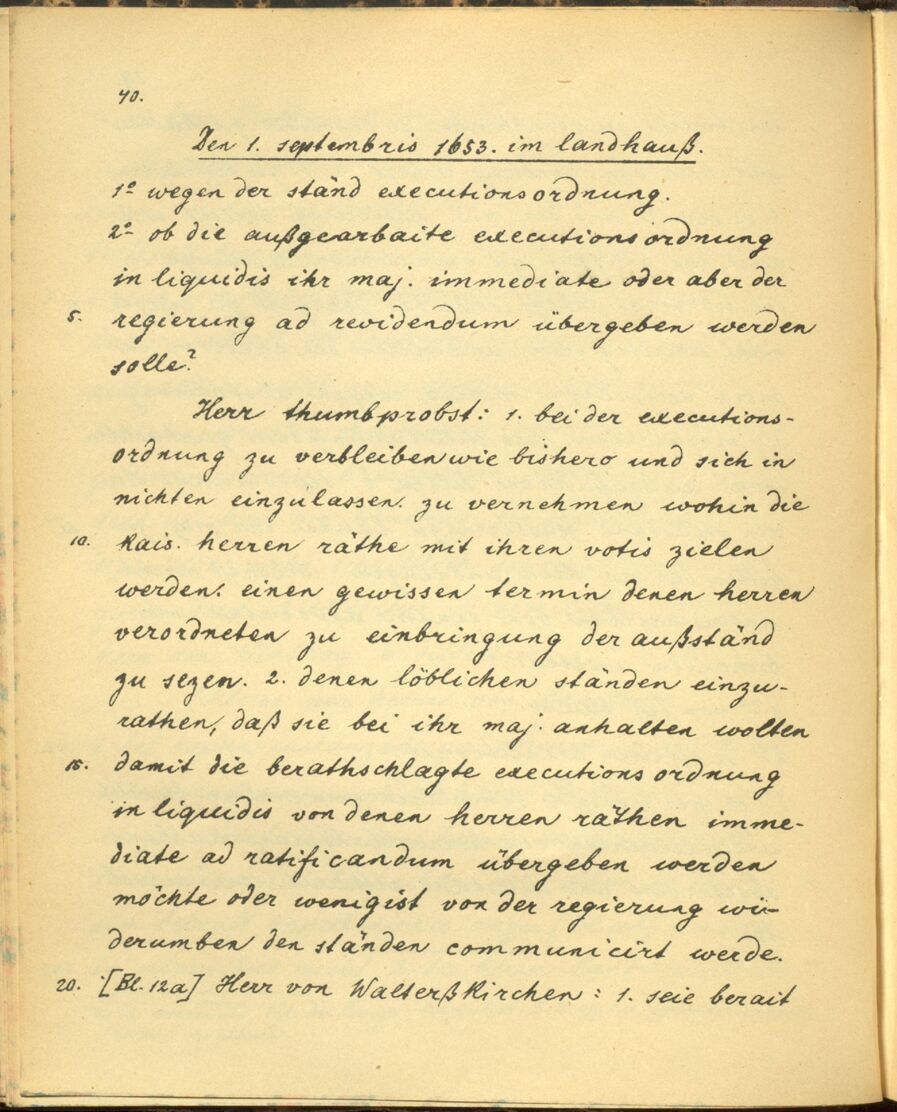 40.
Den 1. septembris 1653. im landhauß.
1º wegen der ständ executionsordnung.
2º ob die außgearbaite executionsordnung
in liquidis ihr maj. immediate oder aber der
5. regierung ad revidendum übergeben werden
solle?
Herr thumbprobst: 1. bei der executions-
ordnung zu verbleiben wie bishero und sich in
nichten einzulassen. zu vernehmen wohin die
10. kais. herren räthe mit ihren votis zielen
werden. einen gewissen termin denen herren
verordneten zu einbringung der außständ
zu sezen. 2. denen löblichen ständen einzu-
rathen, daß sie bei ihr maj. anhalten wolten
15. damit die berathschlagte executionsordnung
in liquidis von denen herren räthen imme-
diate ad ratificandum übergeben werden
möchte oder wenigist von der regierung wi-
derumben den ständen communicirt werde.
20. [Bl. 12a] Herr von Walterßkirchen: 1. seie berait